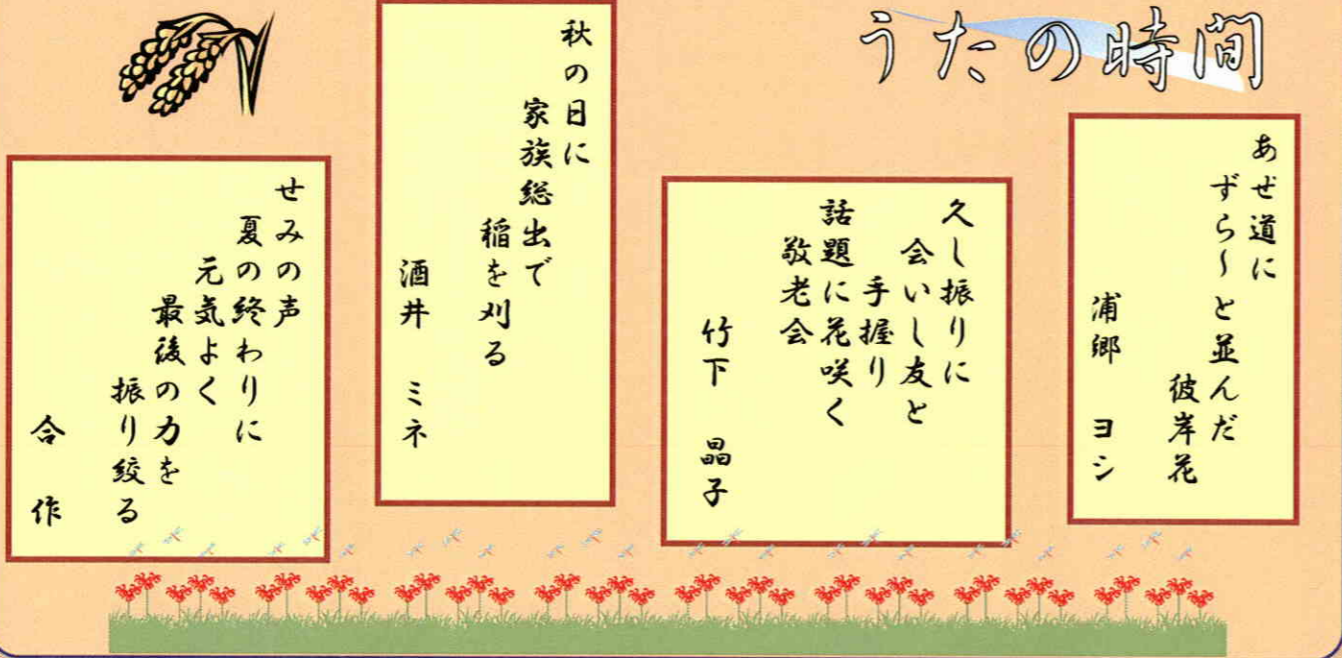 うたの時間
あぜ道に
ずら～と並んだ
彼岸花
浦郷　ヨシ
久し振りに
会いし友と
手握り
話題に花咲く
敬老会
竹下　晶子
秋の日に
家族総出で
稲を刈る
酒井　ミネ
せみの声
夏の終わりに
元気よく
最後の力を
振り絞る
合作